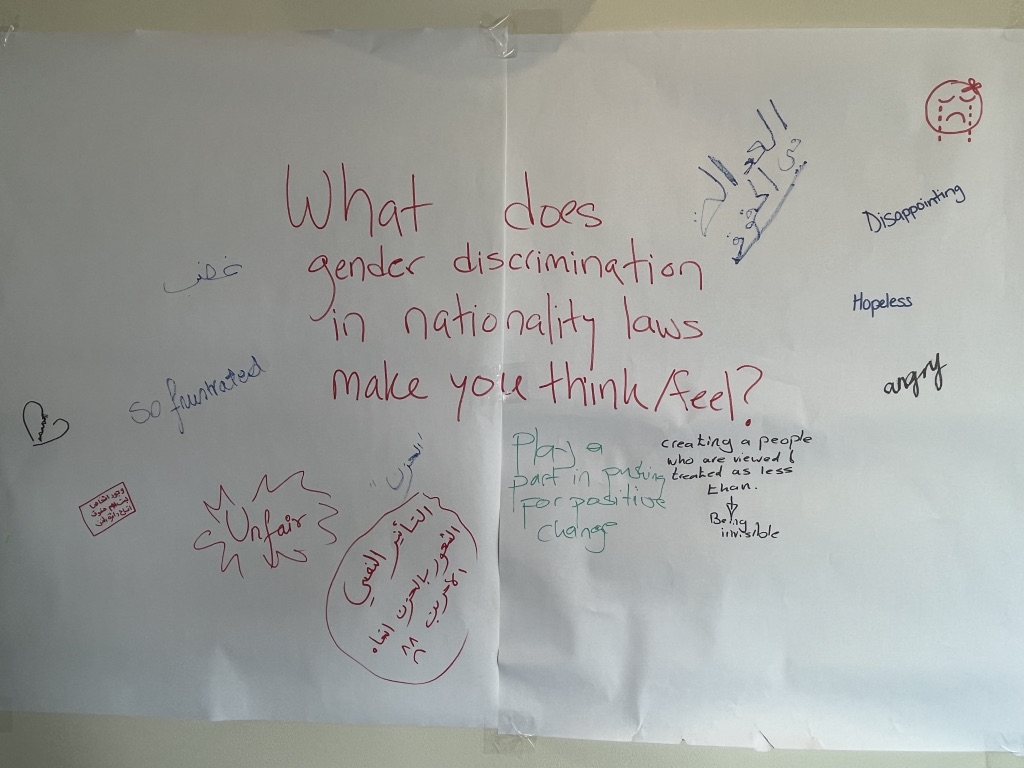 What does
gender discrimination
in nationality laws
make you think/feel?
العدالة
في الحقوق
Disappointing
Hopeless
angry
غضب
so frustrated
"الحزن"
Unfair
التأثير النفسي
الشعور بالحزن اتجاه
الآخرين
Play a
part in pushing
for positive
change
creating a people
who are viewed &
treated as less
than.
Being
invisible